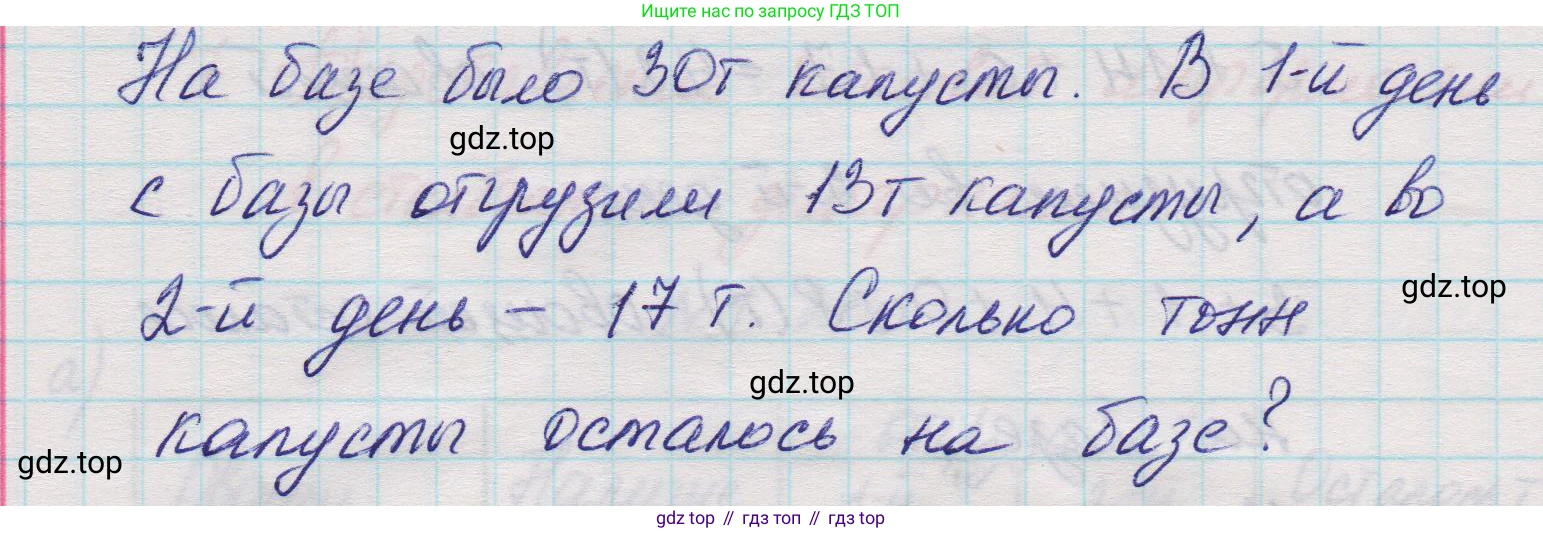 Ищите нас по запросу ГДЗ ТОП
На базе было 30т капусты. В 1-й день
gdz.top
с базы отгрузили 13т капусты, а во
gdz.top
2-й день – 17 т. Сколько тонн
gdz.top
капусты осталось на базе?
gdz.top
gdz top // гдз топ // гдз.top